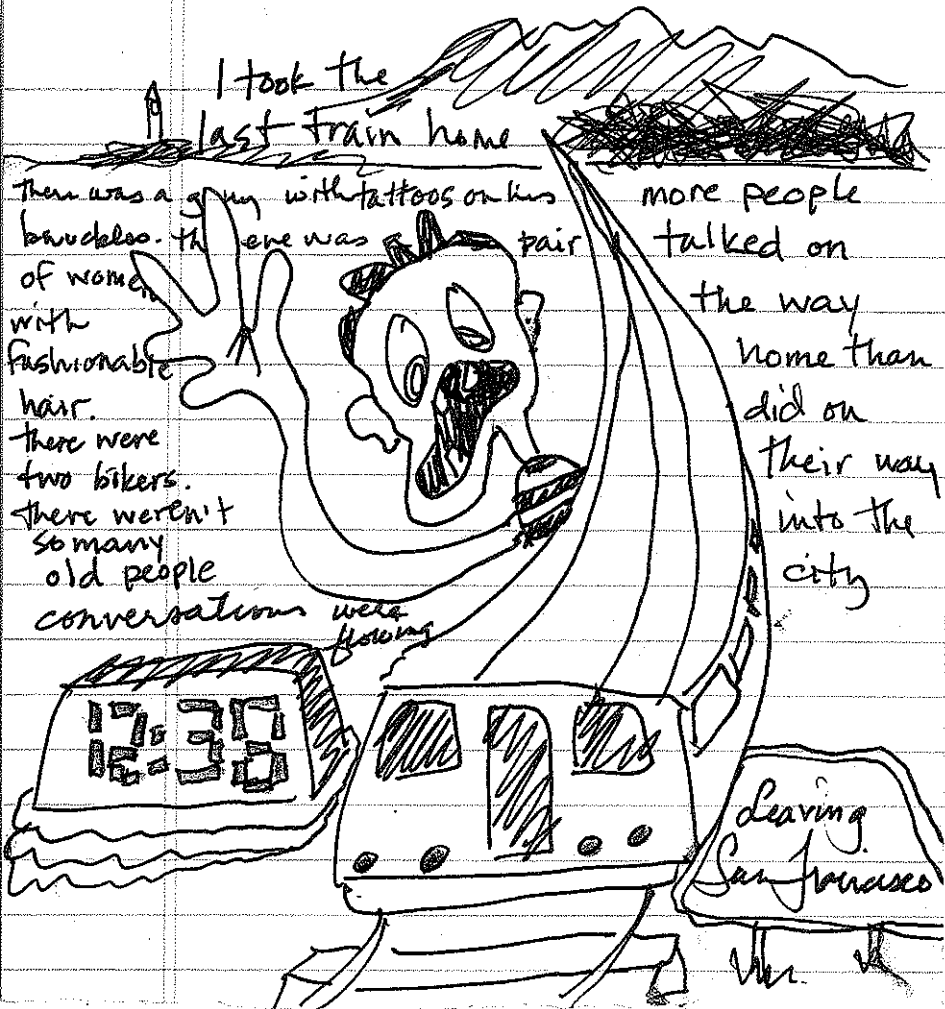 I took the
last train home
there was a guy with tattoos on his
knuckles. there was pair
of women
with
fashionable
hair.
there were
two bikers.
there weren't
so many
old people
conversations were
flowing
more people
talked on
the way
home than
did on
their way
into the
city
Leaving
San Francisco